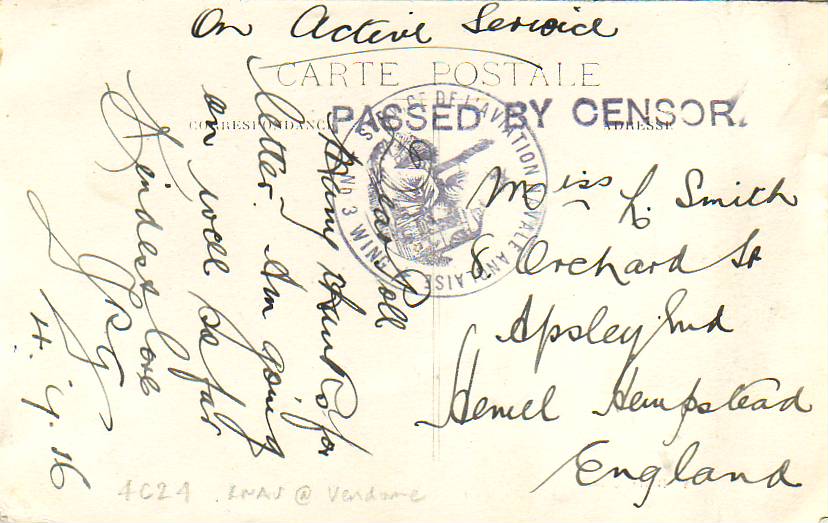 On Active Service
CARTE POSTALE
PASSED BY CENSOR.
CORRESPONDANCE
ADRESSE
SERVICE DE L'AVIATION NAVALE ANGLAISE
No 3 WING
Dear
Many thanks for
letter. Am going
on well so far
Kindest love
4.9.16
Miss L. Smith
8 Orchard St
Apsley End
Hemel Hempstead
England
4C24 RNAS @ Vendome